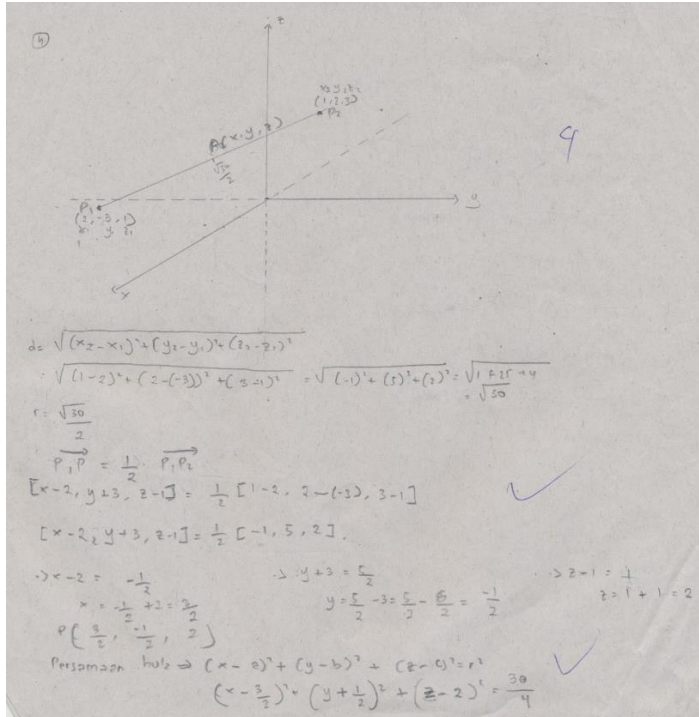 ④
z
x₂ y₂ z₂
(1,2,3)
P₂
P(x,y,z)
√30/2
9
P₁
(2,-3,1)
x₁ y₁ z₁
y
x
d= √((x₂-x₁)²+(y₂-y₁)²+(z₂-z₁)²)
= √((1-2)²+(2-(-3))²+(3-1)²) = √((-1)²+(5)²+(2)²) = √(1+25+4)
= √30
r= √30/2
P₁P = 1/2 . P₁P₂
[x-2, y+3, z-1] = 1/2 [1-2, 2-(-3), 3-1]
[x-2, y+3, z-1] = 1/2 [-1, 5, 2].
·> x-2 = -1/2 ·> y+3 = 5/2 ·> z-1 = 1
x = -1/2 +2 = 3/2 y = 5/2 -3 = 5/2 - 6/2 = -1/2 z = 1 + 1 = 2
P(3/2, -1/2, 2)
Persamaan bola ⇒ (x-a)² + (y-b)² + (z-c)² = r²
(x-3/2)² + (y+1/2)² + (z-2)² = 30/4